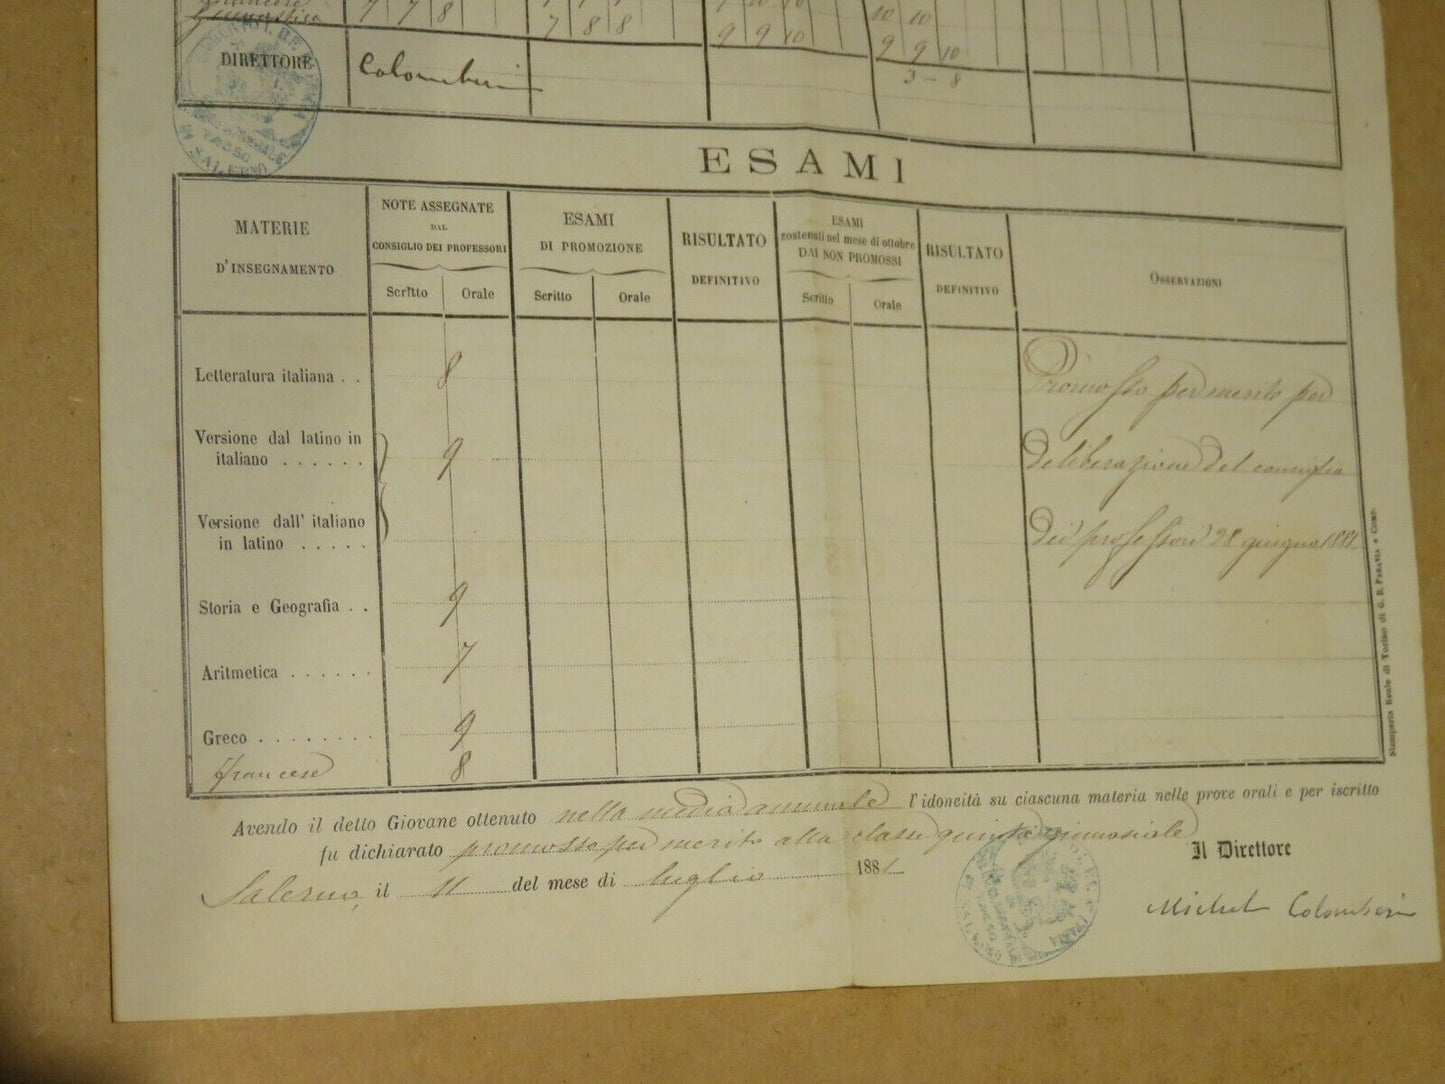 Francese 7 7 8
Ginnastica 7 8 8 9 9 10 10 10
9 9 10
3 - 8
DIRETTORE Colomberi
SALERNO
ESAMI
MATERIE D'INSEGNAMENTO
NOTE ASSEGNATE DAL CONSIGLIO DEI PROFESSORI
Scritto Orale
ESAMI DI PROMOZIONE
Scritto Orale
RISULTATO DEFINITIVO
ESAMI sostenuti nel mese di ottobre DAI NON PROMOSSI
Scritto Orale
RISULTATO DEFINITIVO
OSSERVAZIONI
Letteratura italiana . . 8
Versione dal latino in
italiano . . . . . . 9
Versione dall' italiano
in latino . . . . .
Storia e Geografia . . 9
Aritmetica . . . . . . 7
Greco . . . . . . . . 9
Francese 8
Promosso per merito per
deliberazione del consiglio
dei professori 28 giugno 1881.
Stamperia Reale di Torino di G. B. PARAVIA e COMP.
Avendo il detto Giovane ottenuto nella media annuale l'idoneità su ciascuna materia nelle prove orali e per iscritto
fu dichiarato promosso per merito alla classe quinta ginnasiale
Salerno, il 11 del mese di luglio 1881
Il Direttore
Michel Colomberi